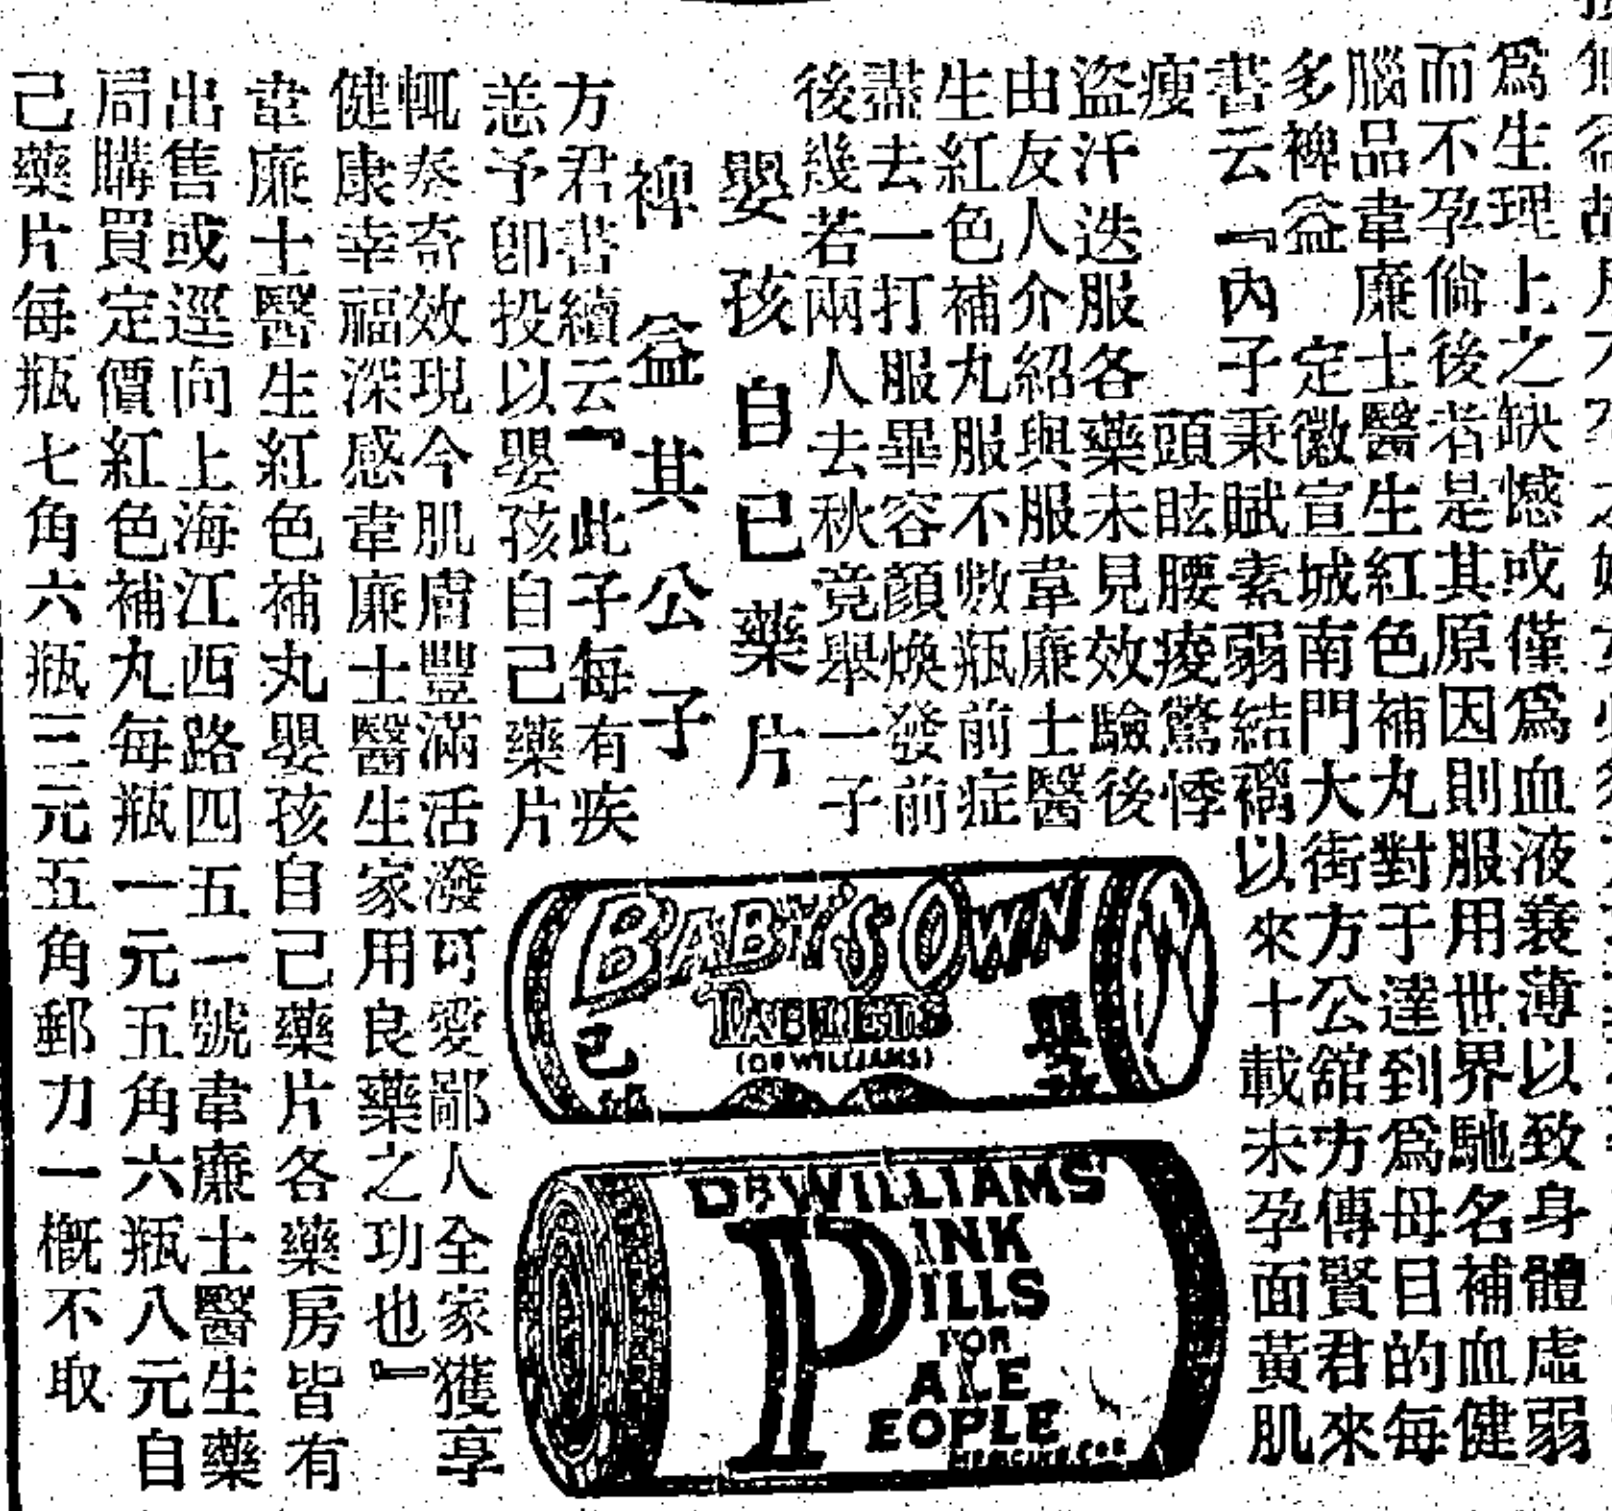 為生理上之缺憾或僅為血液衰薄以致身體虛弱
而不孕倘後者是其原因則服用世界馳名補血健
腦品韋廉士醫生紅色補丸對于達到為母目的每
多裨益 定徽宣城南門大街方公舘方傳賢君來
書云『內子秉賦素弱結褵以來十載未孕面黃肌
瘦 頭眩腰痠驚悸
盜汗迭服各藥未見效驗後
由友人介紹與服韋廉士醫
生紅色補丸服不數瓶前症
盡去一打服畢容顏煥發前
後幾若兩人去秋竟舉一子
嬰孩自己藥片
裨益其公子
方君書續云『此子每有疾
恙予卽投以嬰孩自己藥片
輒奏奇效現今肌膚豐滿活潑可愛鄙人全家獲享
健康幸福深感韋廉士醫生家用良藥之功也』
韋廉士醫生紅色補丸嬰孩自己藥片各藥房皆有
出售或逕向上海江西路四五一號韋廉士醫生藥
局購買定價紅色補丸每瓶一元五角六瓶八元自
己藥片每瓶七角六瓶三元五角郵力一槪不取
BABY'S OWN
TABLETS
(DR WILLIAMS)
嬰孩
自己
DR WILLIAMS'
PINK
PILLS
FOR
PALE
PEOPLE